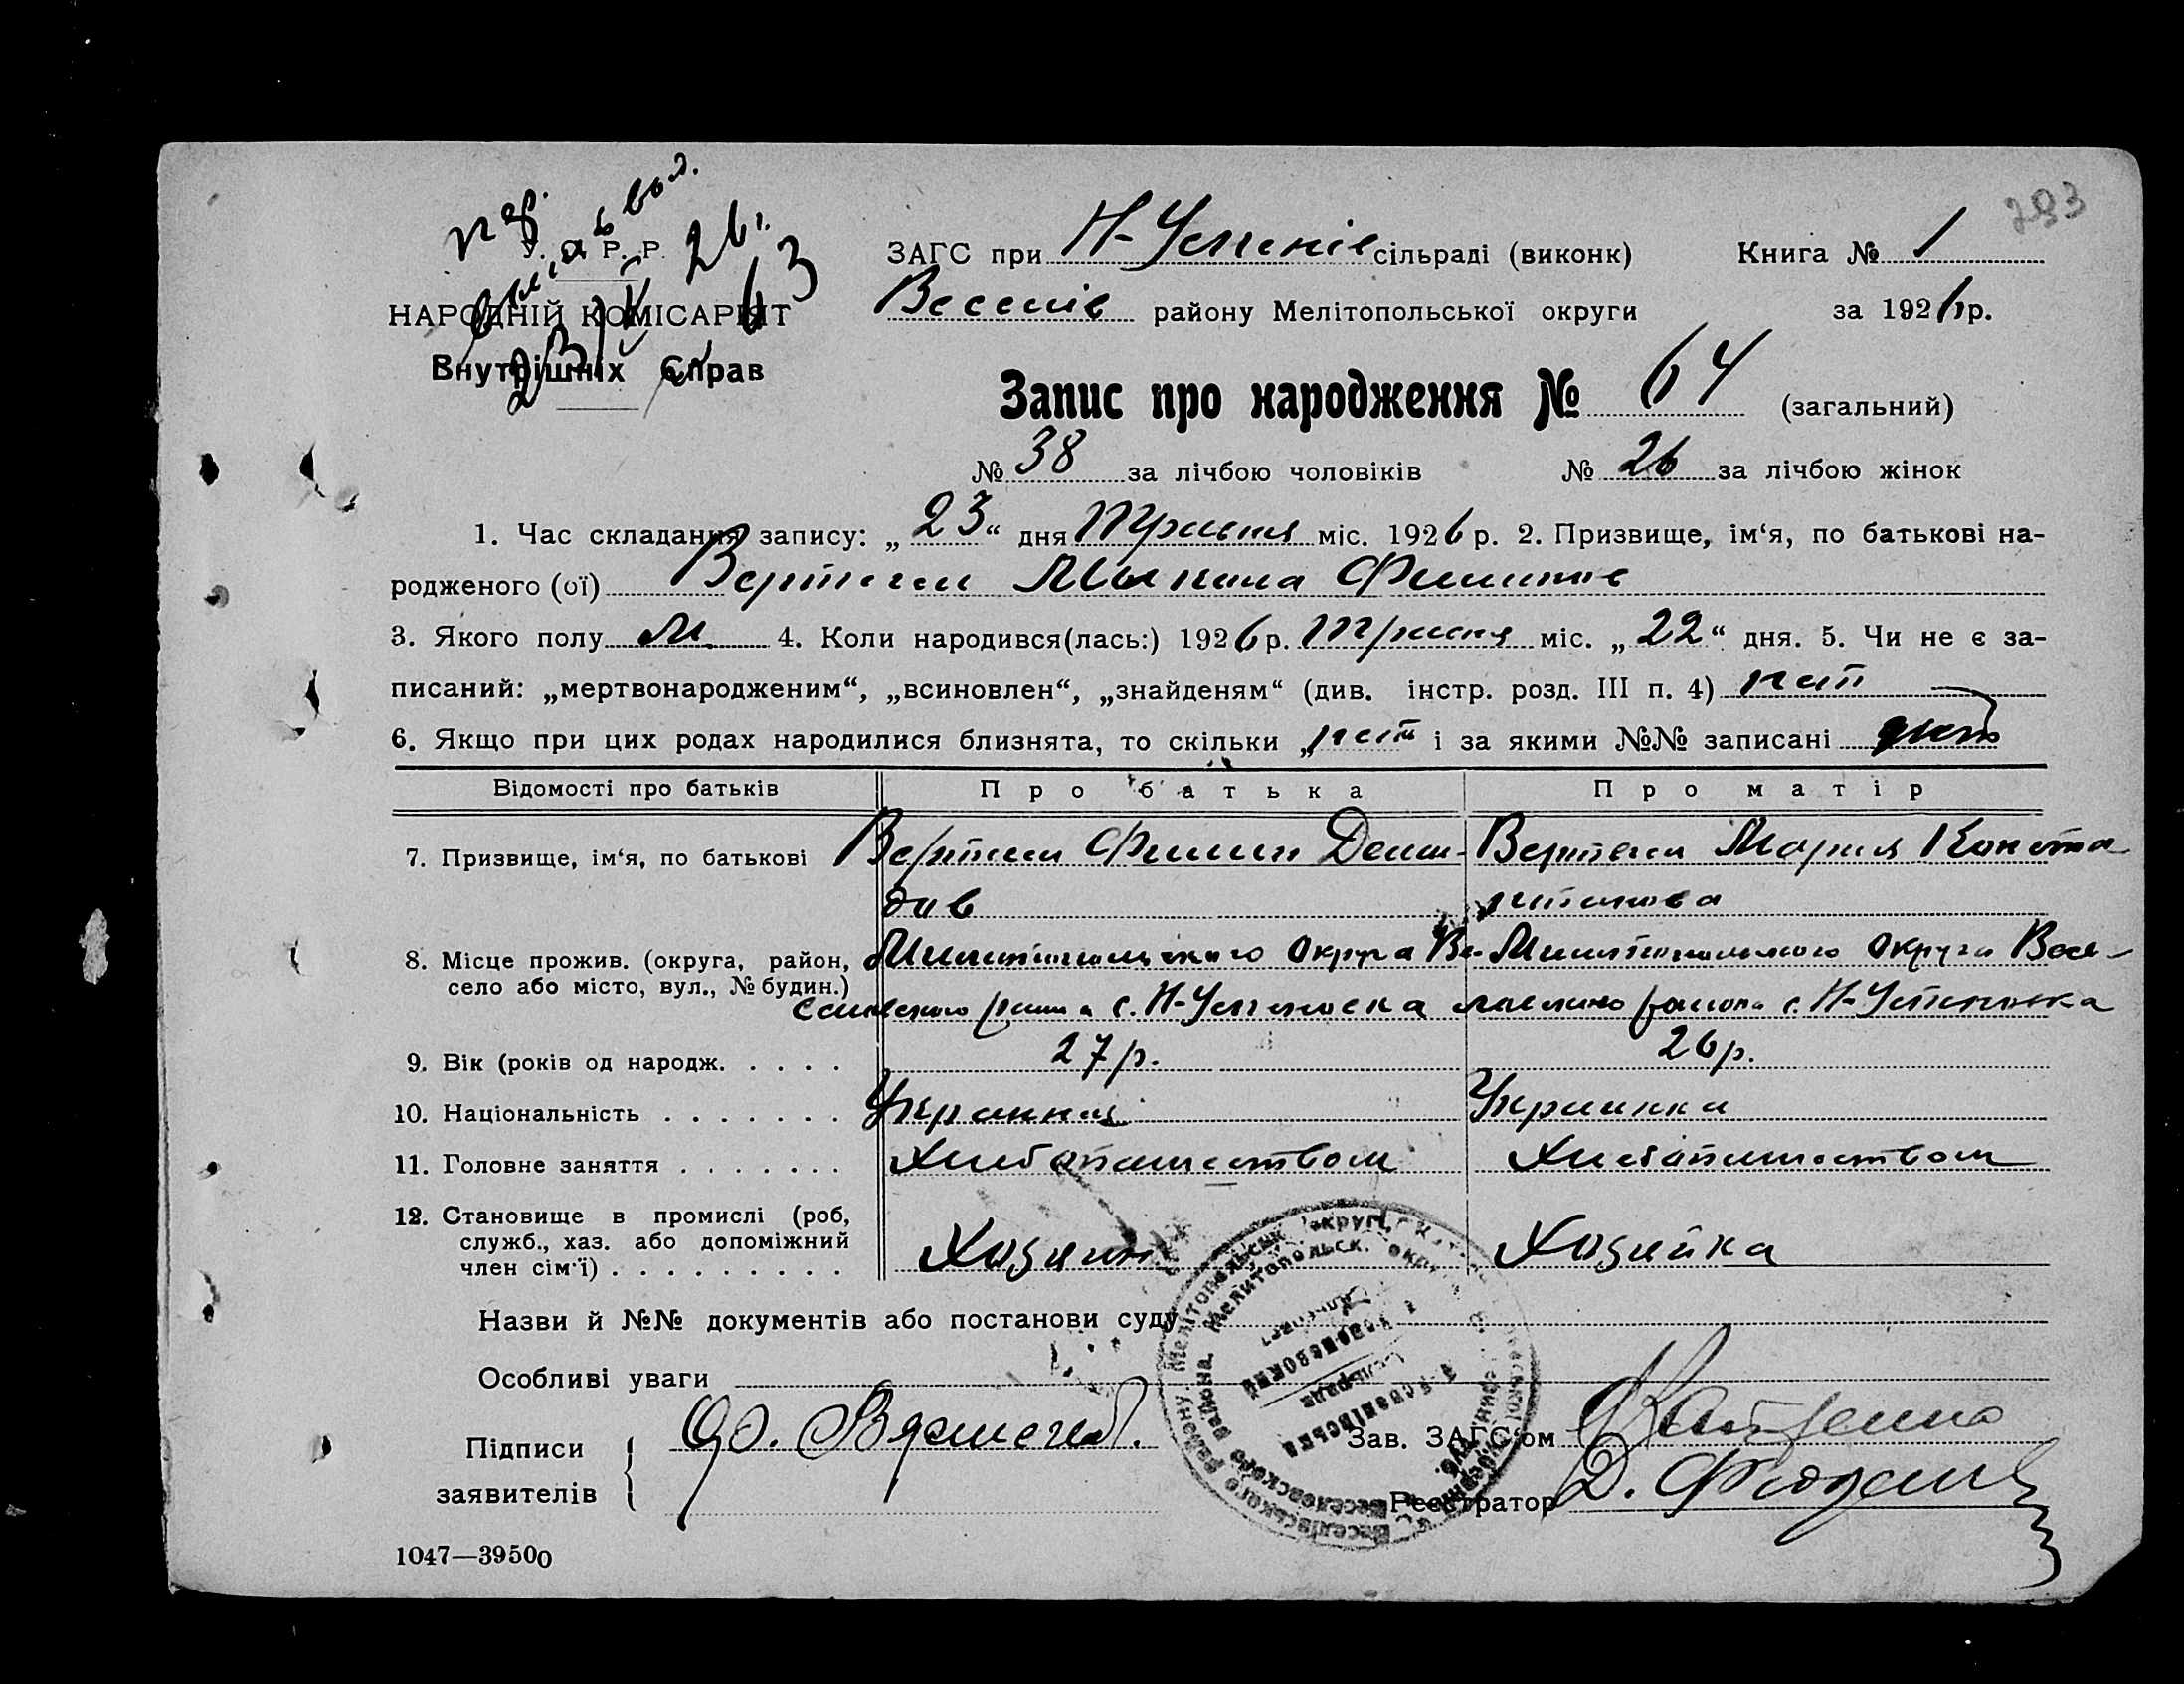 293
У. С. Р. Р.
НАРОДНІЙ КОМІСАРІЯТ
Внутрішніх Справ
26. 63
ЗАГС при Н-Успенів сільраді (виконк) Книга № 1
Веселів району Мелітопольської округи за 1926 р.
Запис про народження № 64 (загальний)
№ 38 за лічбою чоловіків № 26 за лічбою жінок
1. Час складання запису: „23“ дня Травня міс. 1926 р. 2. Призвище, ім‘я, по батькові на-
родженого (ої)
3. Якого полу М. 4. Коли народився(лась:) 1926 р. Травня міс. „22“ дня. 5. Чи не є за-
писаний: „мертвонародженим“, „всиновлен“, „знайденям“ (див. інстр. розд. III п. 4) нет
6. Якщо при цих родах народилися близнята, то скільки „нет і за якими №№ записані
Відомості про батьків Про батька Про матір
7. Призвище, ім‘я, по батькові Филип Деми- МарияКонста
дов нтинова
8. Місце прожив. (округа, район, Мелитопольского округа Ве- Мелитопольского округа Весе-
село або місто, вул., № будин.) селовского района с. Н-Успеновка ловского района с. Н-Успеновка
9. Вік (років од народж. . . . . 27 р. 26 р.
10. Національність . . . . . . . Украинец Украинка
11. Головне заняття . . . . . . . Хлебопашеством Хлебопашеством
12. Становище в промислі (роб, Хозяин Хозяйка
служб., хаз. або допоміжний
член сім‘ї) . . . . . . . . .
Назви й №№ документів або постанови суду
Особливі уваги
Підписи Зав. ЗАГС‘ом
заявителів Реєстратор Д.
1047—39500
Мелітопольськ. округи
Мелитопольск. округа
Веселівського району
Веселовского района